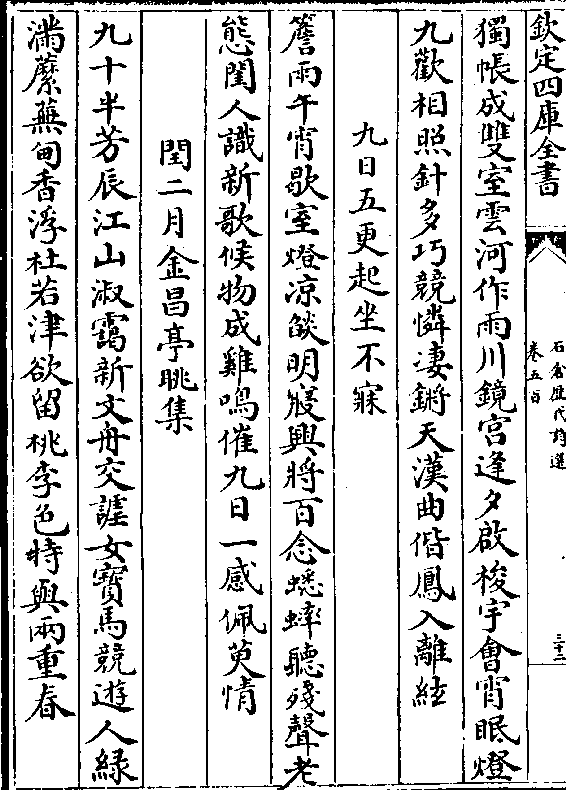 欽定四庫全書
石倉歷代詩選
卷五百
三十二
獨帳成雙室雲河作雨川鏡宮逢夕啟梭宇會宵眠燈
九歡相照針多巧競憐淒鏘天漢曲偕鳳入離絃
九日五更起坐不寐
簷雨午宵歇室燈凉燄明寤興將百念蟋蟀聽殘聲老
態閨人識新歌候物成雞鳴催九日一感佩萸情
閏二月金昌亭眺集
九十半芳辰江山淑靄新文舟交謔女寶馬競遊人緑
滿蘼蕪甸香浮杜若津欲留桃李色特與兩重春